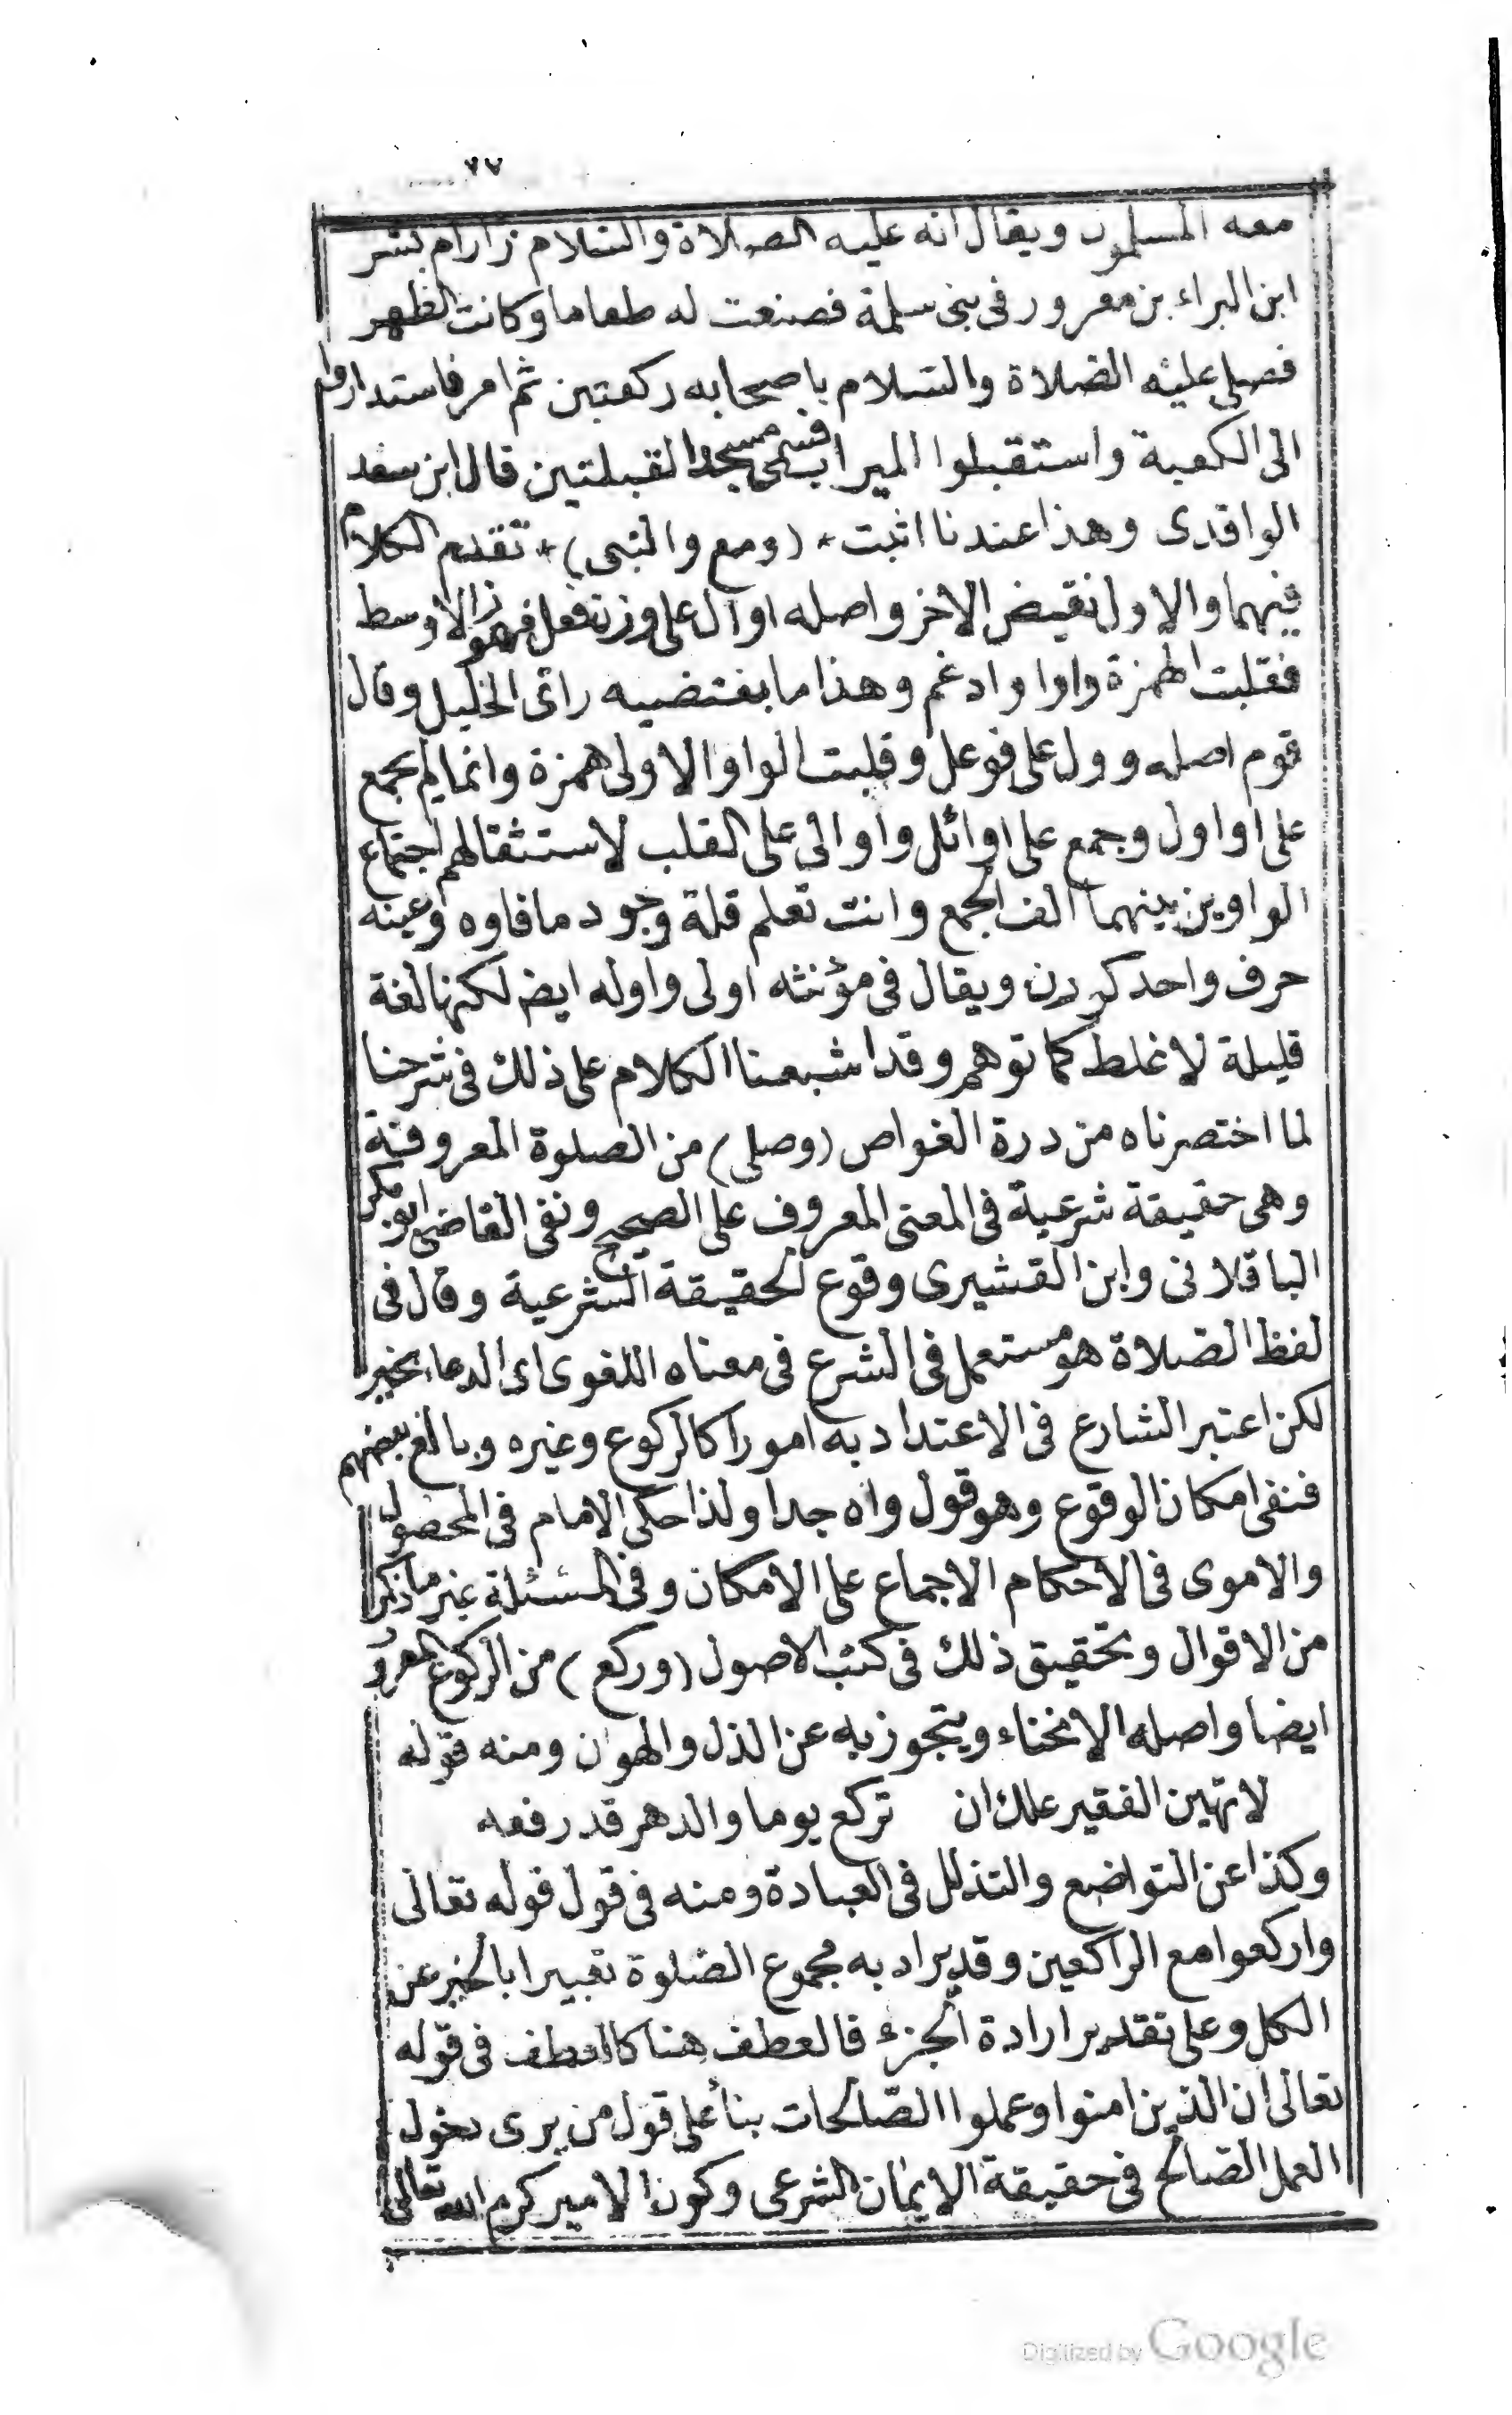 ٧٧
معه المسلمون ويقال انه عليه الصلاة والسلام زار ام بشر
ابن البراء بن معرور فى بنى سلمة فصنعت له طعاما وكانت الظهر
فصلى عليه الصلاة والسلام باصحابه ركعتين ثم امر فاستداروا
الى الكعبة واستقبلوا الميزاب فسمى مسجد القبلتين قال ابن سعد
الواقدى وهذا عندنا اثبت * (ومع والنبى) * تقدم الكلام
فيهما والاول نقيض الاخر واصله اوأل على وزن افعل فهو الاوسط
فقلبت الهمزة واوا وادغم وهذا ما يقتضيه رائى الخليل وقال
قوم اصله وول على فوعل وقلبت الواو الاولى همزة وانما لم يجمع
على اواول وجمع على اوائل واوالى على القلب لاستثقالهم اجتماع
الواوين بينهما الف الجمع وانت تعلم قلة وجود ما فاوه وعينه
حرف واحد كددن ويقال فى مؤنثه اولى واوله ايضا لكنها لغة
قليلة لا غلط كما توهم وقد اشبعنا الكلام على ذلك فى شرحنا
لما اختصرناه من درة الغواص (وصلى) من الصلوة المعروفة
وهى حقيقة شرعية فى المعنى المعروف على الصحيح ونفى القاضى ابوبكر
الباقلانى وابن القشيرى وقوع الحقيقة الشرعية وقال فى
لفظ الصلاة هو مستعمل فى الشرع فى معناه اللغوى اى الدعاء بخير
لكن اعتبر الشارع فى الاعتداد به امورا كالركوع وغيره وبالغ بعضهم
فنفى امكان الوقوع وهو قول واه جدا ولذا حكى الامام فى المحصول
والاموى فى الاحكام الاجماع على الامكان وفى المسئلة غير ما ذكر
من الاقوال وتحقيق ذلك فى كتب الاصول (وركع) من الركوع المعروف
ايضا واصله الانحناء ويتجوز به عن الذل والهوان ومنه قوله
لا تهين الفقير علك ان تركع يوما والدهر قد رفعه
وكذا عن التواضع والتذلل فى العبادة ومنه فى قول قوله تعالى
واركعوا مع الراكعين وقد يراد به مجموع الصلوة تعبيرا بالجزء عن
الكل وعلى تقدير ارادة الجزء فالعطف هنا كالعطف فى قوله
تعالى ان الذين امنوا وعملوا الصالحات بناء على قول من يرى دخول
العمل الصالح فى حقيقة الايمان الشرعى وكون الامير كرم الله تعالى
Digitized by Google